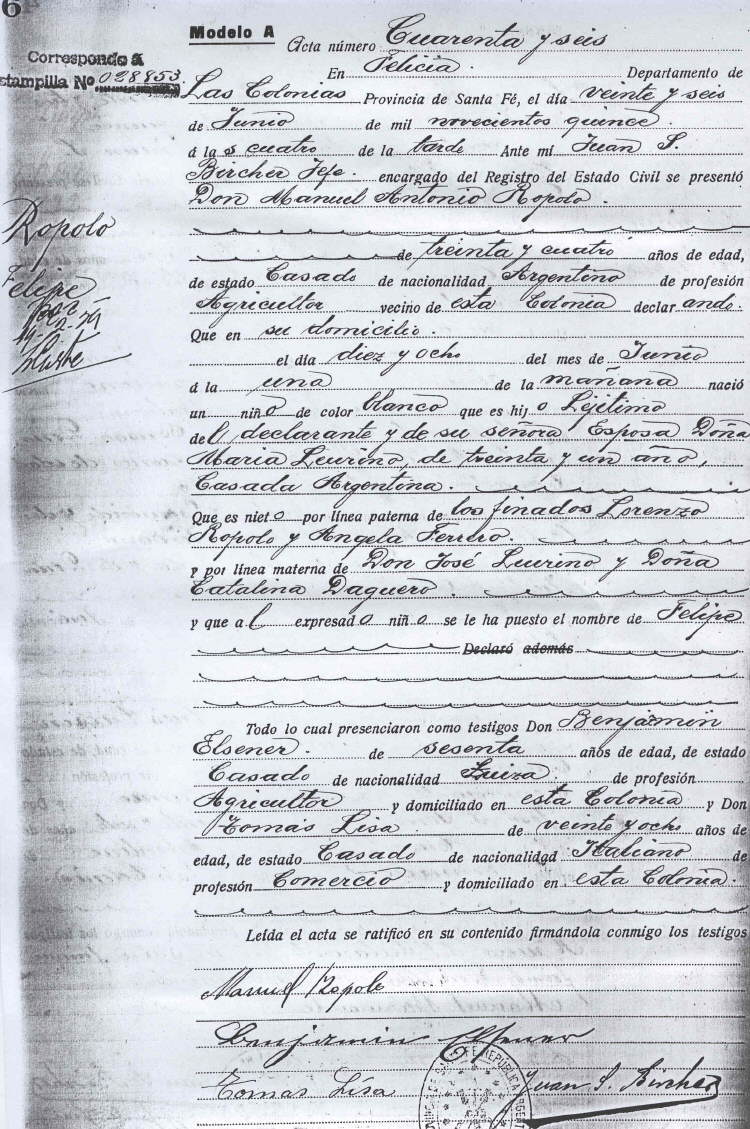 6
Modelo A
Acta número Cuarenta y seis
Corresponde á
stampilla No 028853
En Felicia Departamento de
Las Colonias Provincia de Santa Fé, el día veinte y seis
de Junio de mil novecientos quince
á las cuatro de la tarde Ante mí Juan S.
Bircher Jefe encargado del Registro del Estado Civil se presentó
Don Manuel Antonio Ropolo.
de treinta y cuatro años de edad,
de estado Casado de nacionalidad Argentino de profesión
Agricultor vecino de esta Colonia declarando.
Que en su domicilio.
el día diez y ocho del mes de Junio
á la una de la mañana nació
un niño de color blanco que es hijo Lejitimo
del declarante y de su señora Esposa Doña
Maria Leurino, de treinta y un año,
Casada Argentina.
Que es nieto por línea paterna de los finados Lorenzo
Ropolo y Angela Ferrero.
y por línea materna de Don José Leurino y Doña
Catalina Daguero.
y que al expresado niño se le ha puesto el nombre de Felipe
Declaró además
Todo lo cual presenciaron como testigos Don Benjamin
Elsener. de sesenta años de edad, de estado
Casado de nacionalidad Suiza de profesión
Agricultor y domiciliado en esta Colonia y Don
Tomás Lisa de veinte y ocho años de
edad, de estado Casado de nacionalidad Italiano de
profesión Comercio y domiciliado en esta Colonia.
Leída el acta se ratificó en su contenido firmándola conmigo los testigos
Manuel Ropolo
Benjamin Elsener
Tomas Lisa
Juan S. Bircher
Ropolo
Felipe